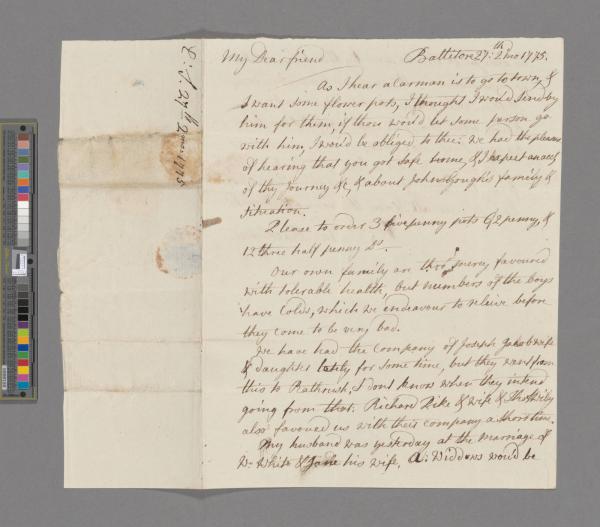 E: S 27th 2mo 1775
My Dear friend
Ballitore 27th: 2mo 1775.
As I hear a carman is to go to town, &
I want some flower pots, I thought I would send by
him for them, if thou would let some person go
with him, I would be obliged to thee: We had the pleasure
of hearing that you got safe home, & I expect an acct
of thy Journey &c, & about John Gough's family &
situation.
Please to order 3 five penny pots 6 2 penny, &
12 three half penny Do.
Our own family are thro' mercy favoured
with tolerable health, but numbers of the boys
have Colds, which we endeavour to releive before
they come to be very bad.
We have had the Company of Joseph wife
& daughter lately for some time, but they went from
this to Rathrush, I dont know when they intend
going from that. Richard Pike & wife &
also favoured us with their company a short time.
My husband was yesterday at the marriage of
Wm White & Jane his wife. A: Widdows would be